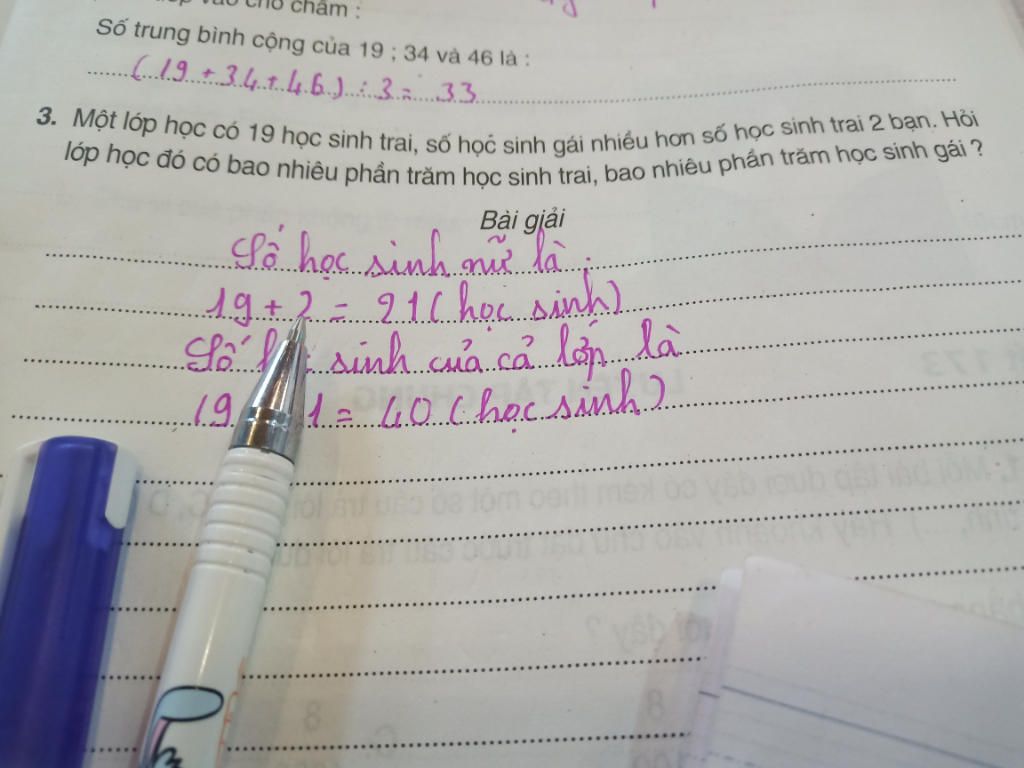 vào chỗ chấm :
Số trung bình cộng của 19 ; 34 và 46 là :
(19 + 34 + 46) : 3 = 33
3. Một lớp học có 19 học sinh trai, số học sinh gái nhiều hơn số học sinh trai 2 bạn. Hỏi
lớp học đó có bao nhiêu phần trăm học sinh trai, bao nhiêu phần trăm học sinh gái ?
Bài giải
Số học sinh nữ là :
19 + 2 = 21 (học sinh)
Số sinh của cả lớp là
19 1 = 40 (học sinh)